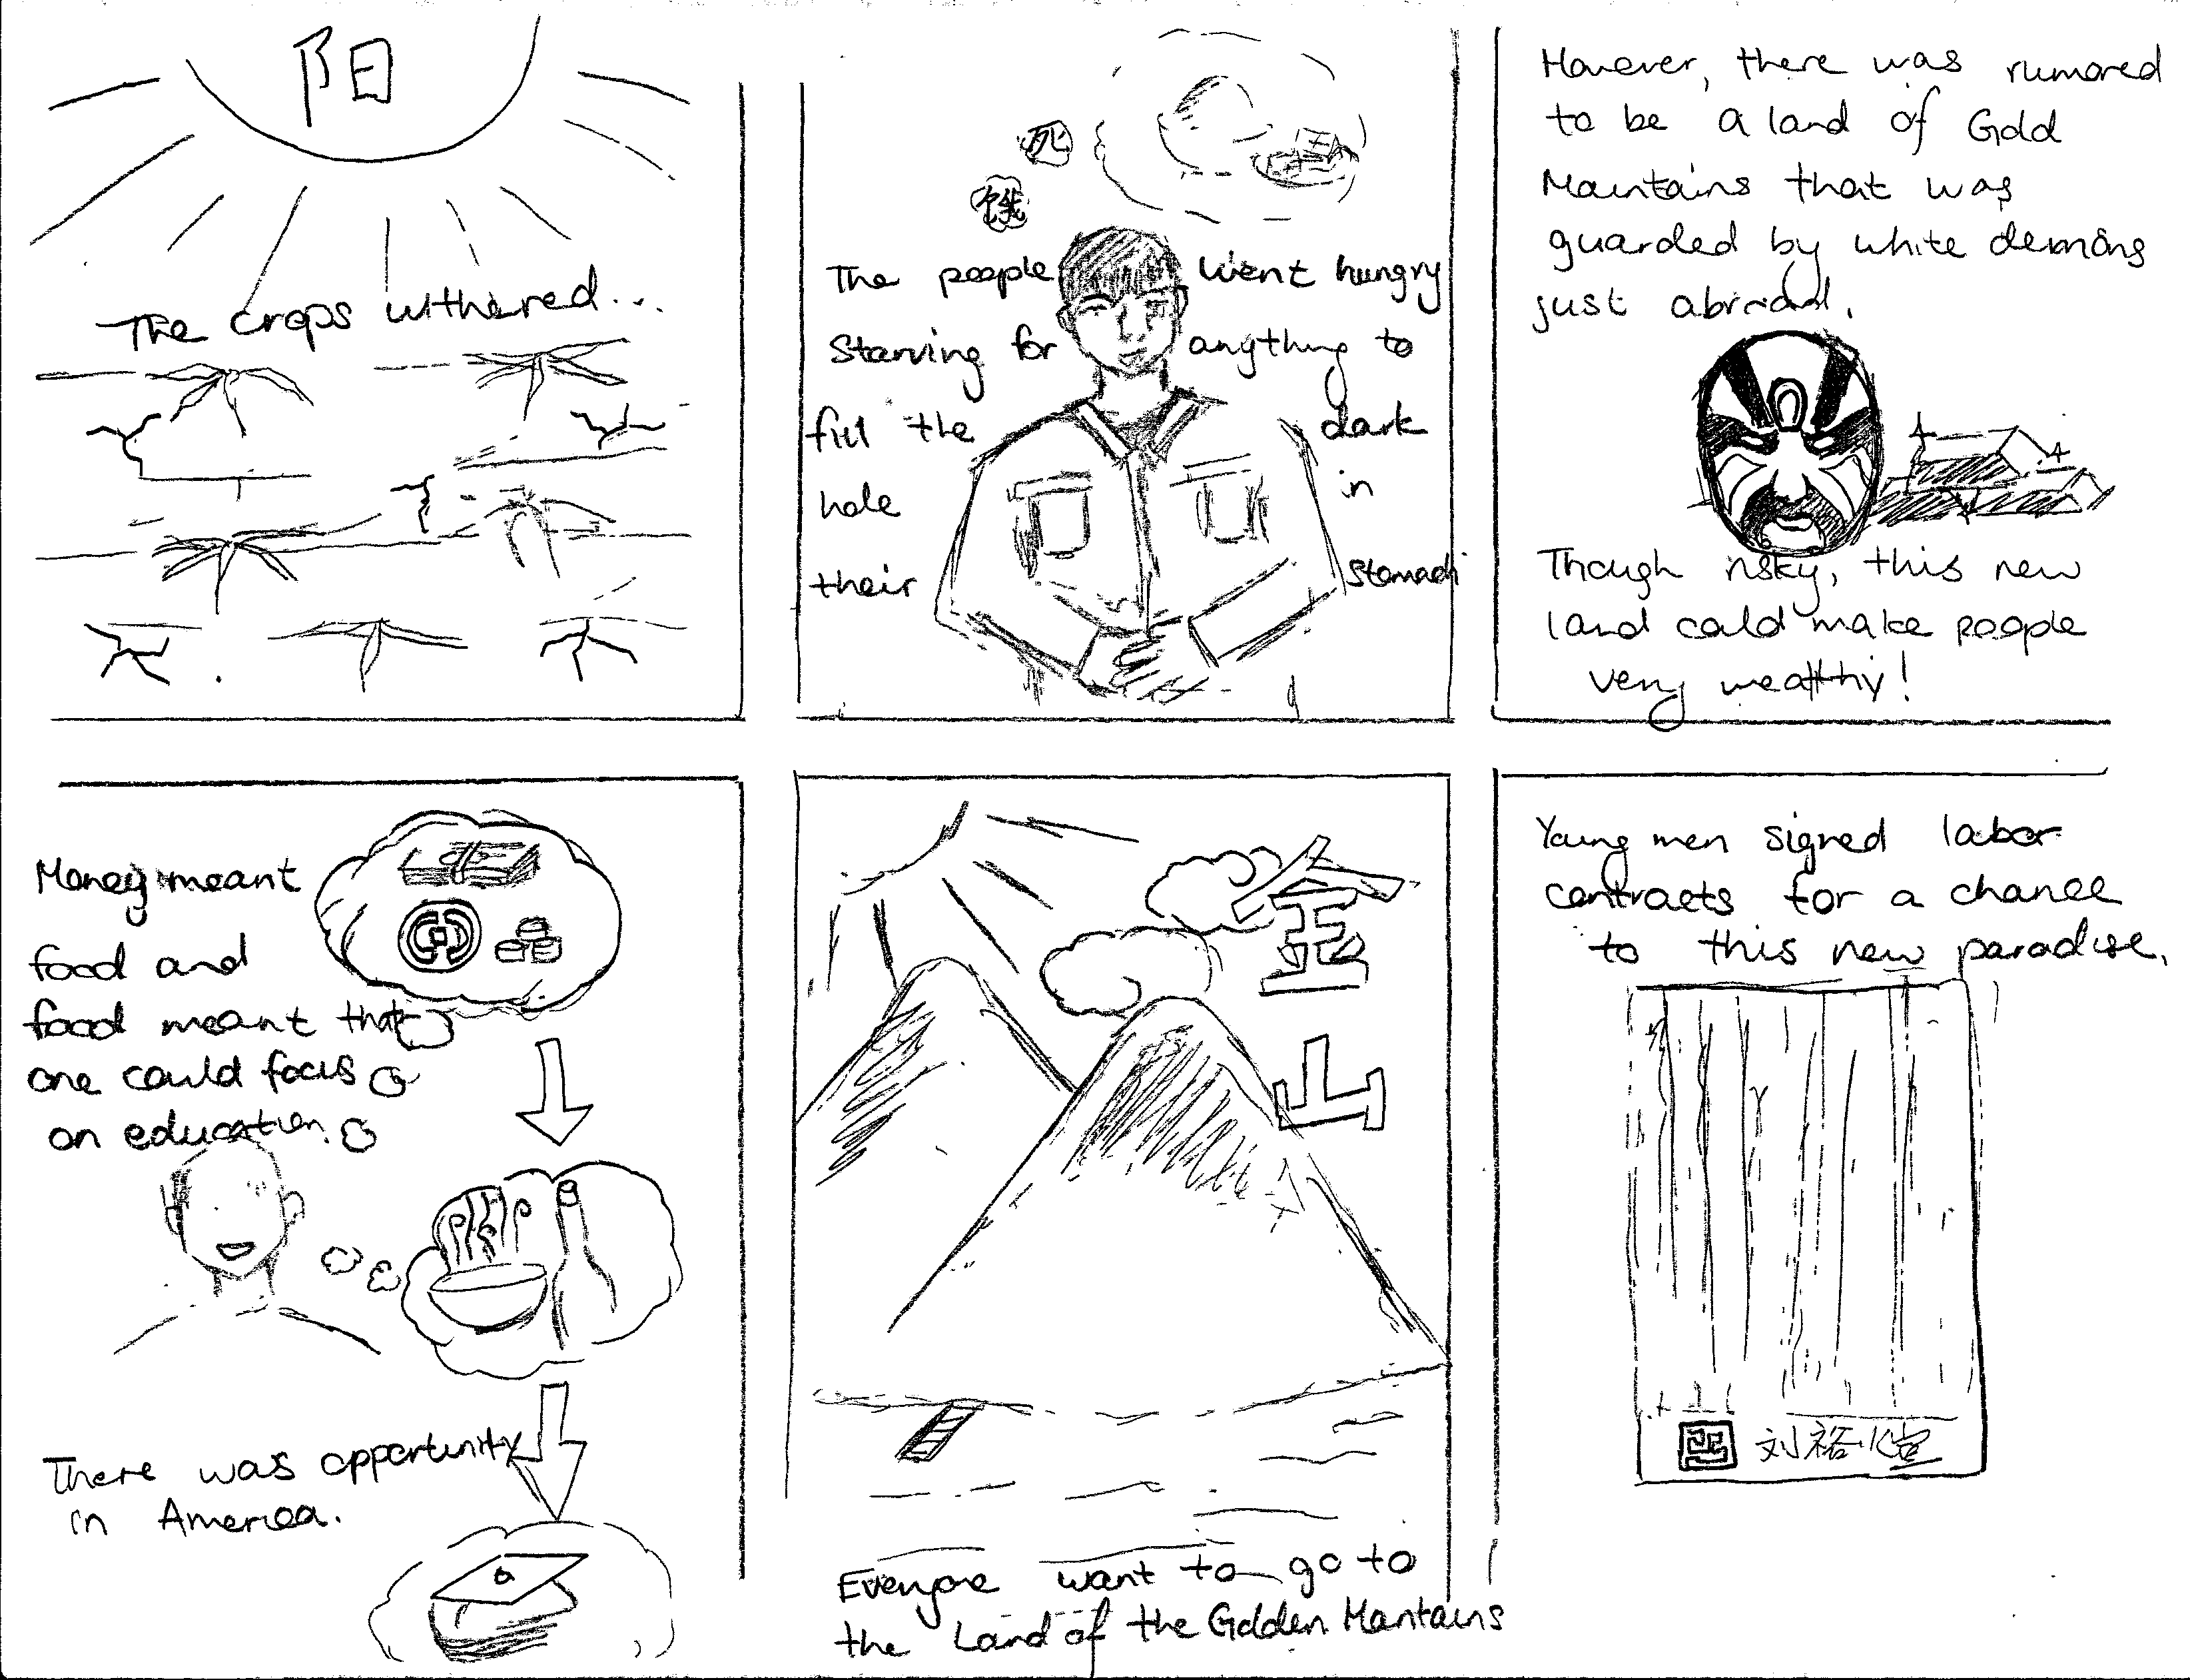 阳
The crops withered...
死
饿
The people went hungry
Starving for anything to
fill the dark
hole in
their stomach
However, there was rumored
to be a land of Gold
Mountains that was
guarded by white demons
just abroad.
Though risky, this new
land could make people
very wealthy!
Money meant
food and
food meant that
one could focus
on education.
There was opportunity
in America.
金
山
Everyone want to go to
the Land of the Golden Mantains
Young men signed labor
contracts for a chance
to this new paradise.
刘裕